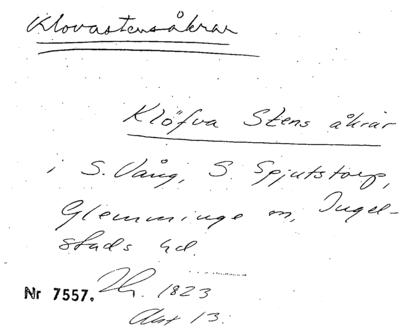 Klovastensåkrar
Klöfva Stens åkrar
i S. Vång, S. Spjutstorp,
Glemminge sn, Ingel-
stads hd.
Nr 7557. Lh. 1823
Akt 13.